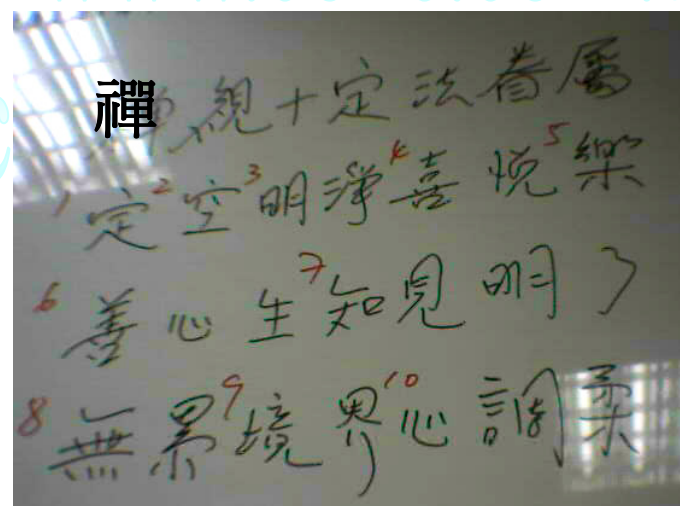 禪觀十定法眷屬
1定2空3明淨4喜悅5樂
6善心生7知見明了
8無累9境界10心調柔